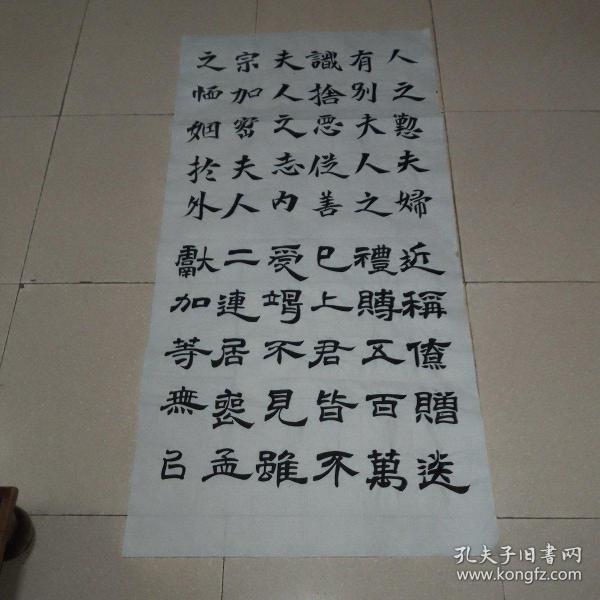 人之懃夫婦
有别夫人之
識捨惡從善
夫人文志内
宗加密夫人
之恤姻於外
近稱僚贈送
禮賻五百萬
已上君皆不
受竭不見雖
二連居喪孟
獻加等無以
孔夫子旧書网
www.kongfz.com